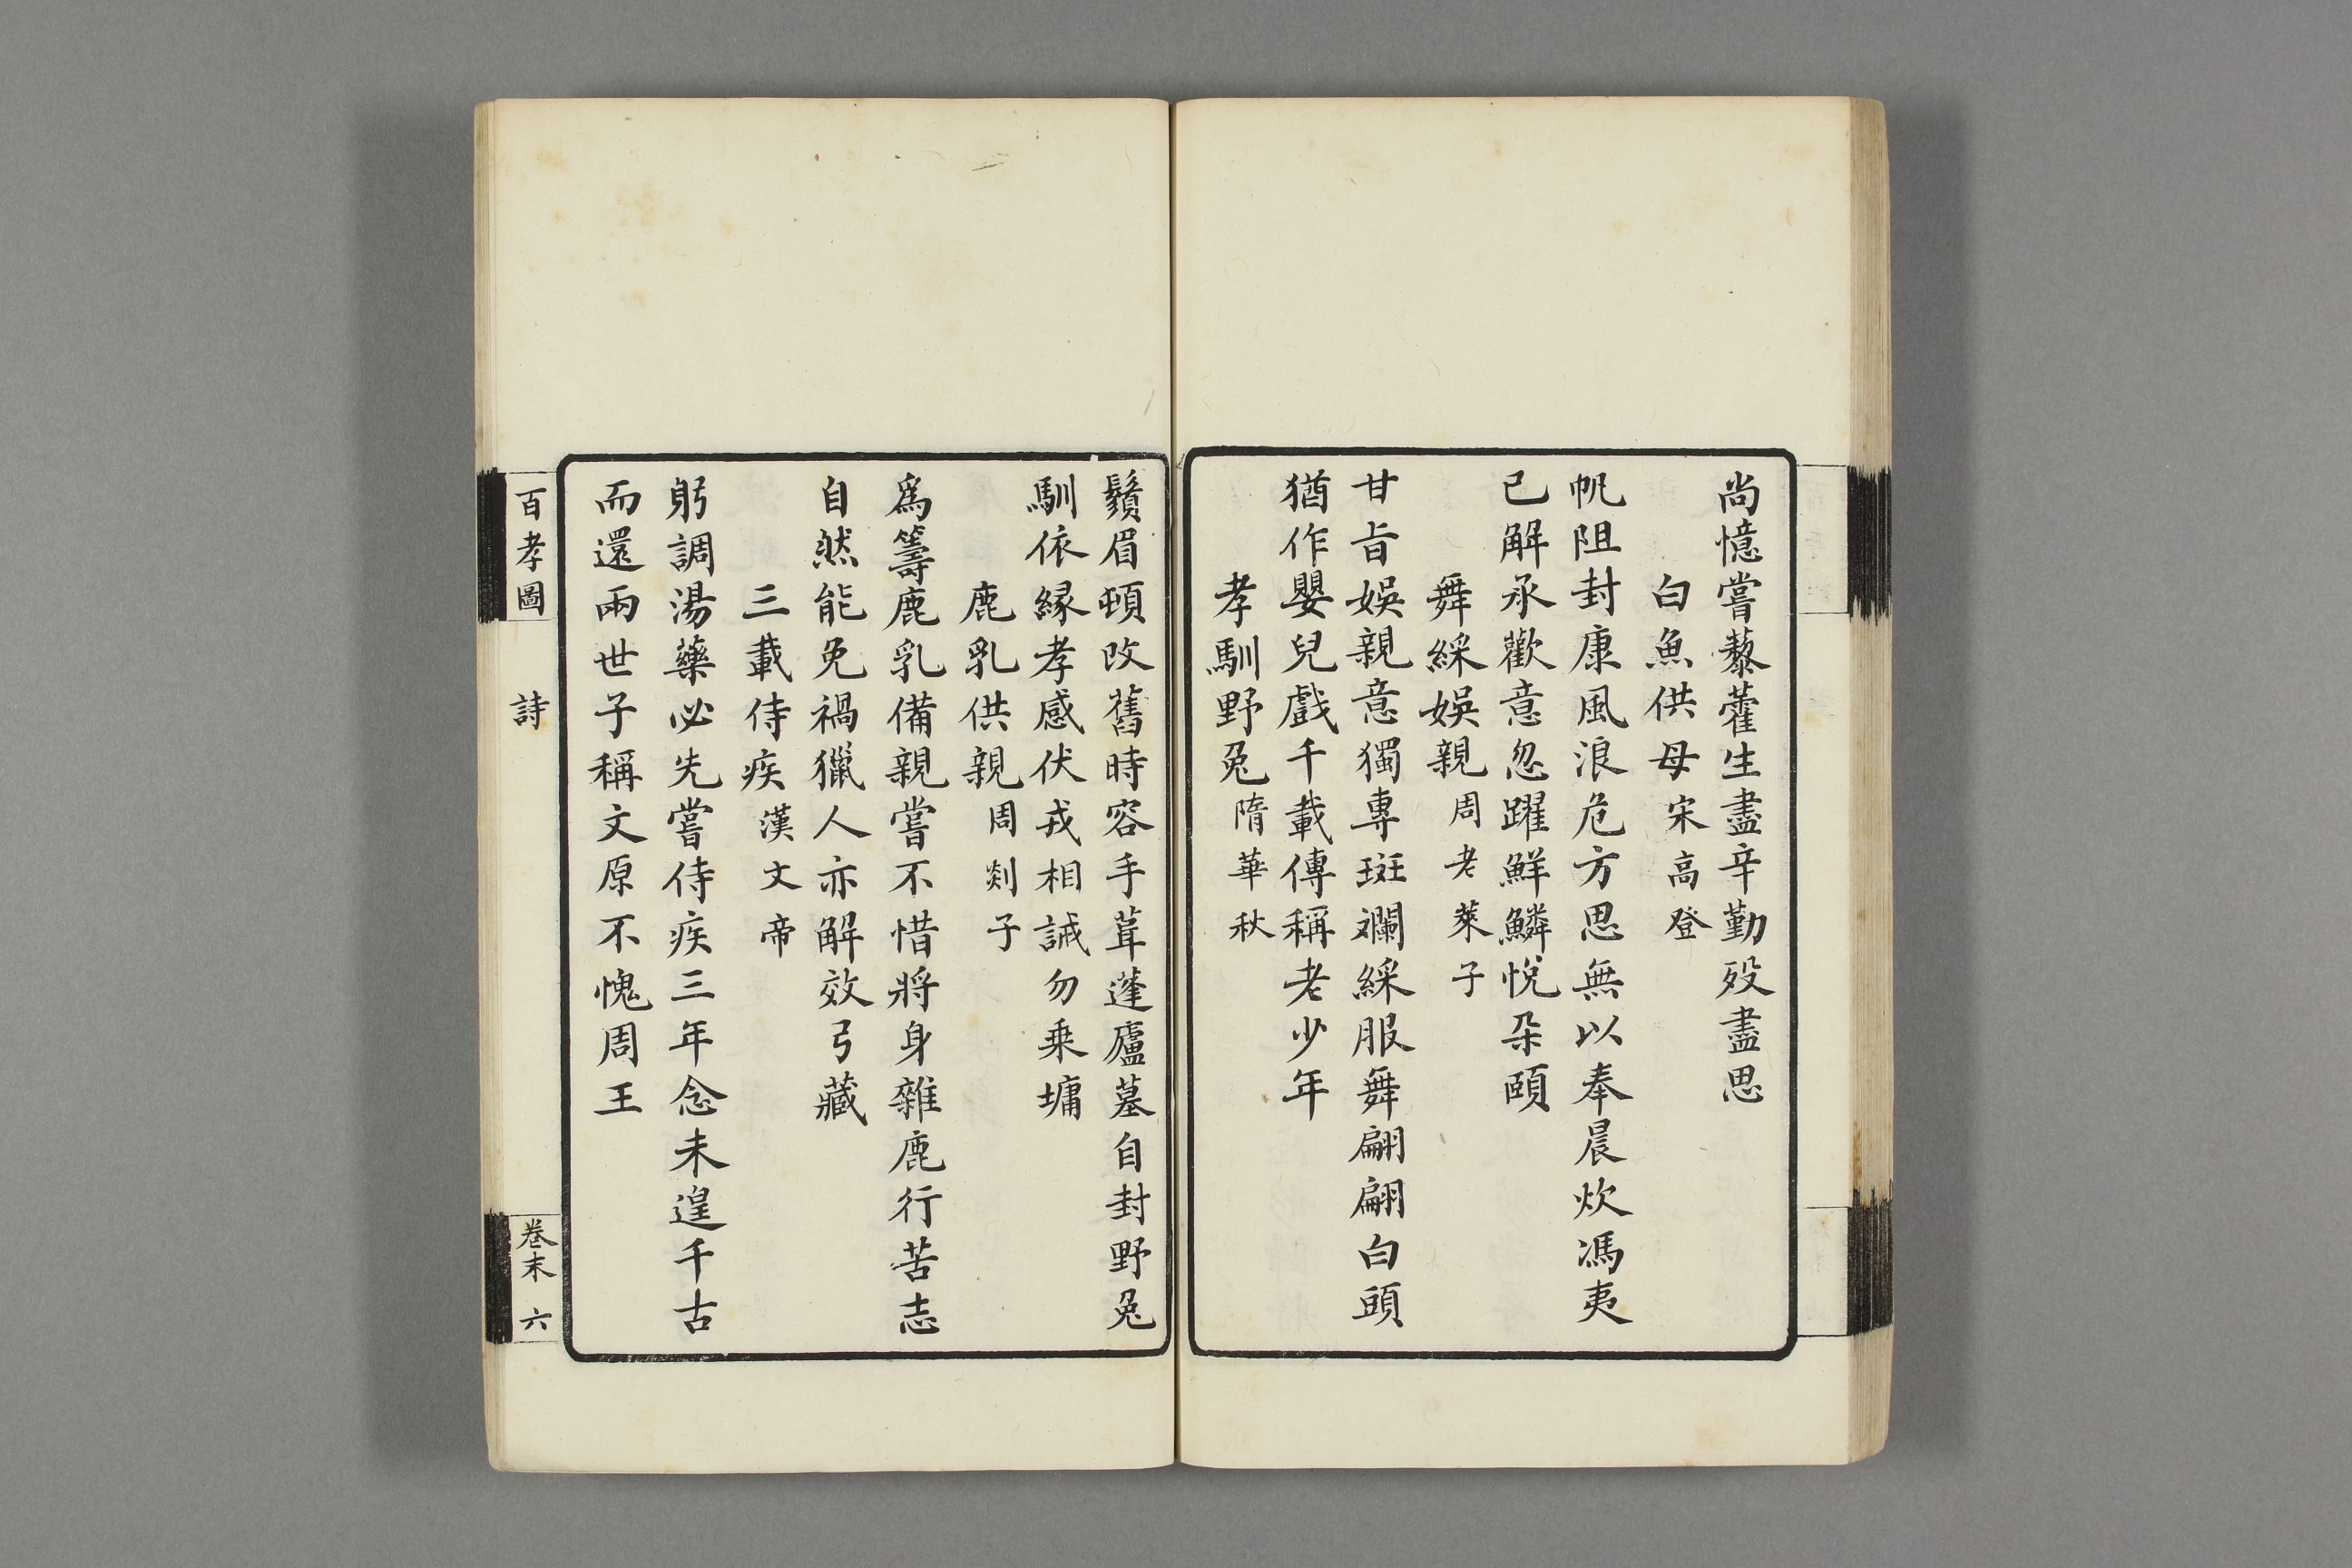 尚憶嘗藜藿生盡辛勤歿盡思
白魚供母宋高登
帆阻封康風浪危方思無以奉晨炊馮夷
已解承歡意忽躍鮮鱗悅朵頤
舞綵娛親周老萊子
甘旨娛親意獨專斑斕綵服舞翩翩白頭
猶作嬰兒戲千載傳稱老少年
孝馴野兔隋華秋
鬚眉頓改舊時容手葺蓬廬墓自封野兔
馴依緣孝感伏戎相誡勿乗墉
鹿乳供親周剡子
為籌鹿乳備親嘗不惜將身雜鹿行苦志
自然能免禍獵人亦解效弓藏
三載侍疾漢文帝
躬調湯藥必先嘗侍疾三年念未遑千古
而還兩世子稱文原不愧周王
百孝圖 詩 卷末 六